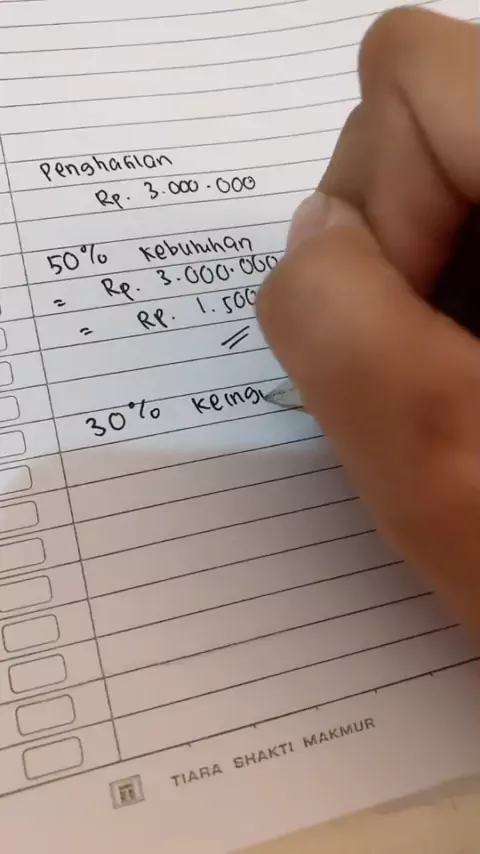 Penghasilan
Rp. 3.000.000
50% Kebutuhan
= Rp. 3.000.000
= Rp. 1.500
30% Keingi
TIARA SHAKTI MAKMUR